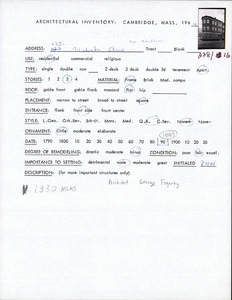 ARCHITECTURAL INVENTORY: CAMBRIDGE, MASS, 196
ADDRESS: Tract Block
USE: residential commercial religious
TYPE: single double row 2 deck 3 deck double 3d tenement Apart.
STORIES: 1 2 3 4 MATERIAL: Frame Brick Mod. compo
ROOF: gable front gable flank mansard flat hip
PLACEMENT: narrow to street broad to street square
ENTRANCE: flank front side front center
STYLE: L.Geo. Grk.Rev. Brkttd. Mans. Med. Q.A. C.Rev. None
ORNAMENT: little moderate elaborate
DATE: 1790 1800 10 20 30 40 50 60 70 80 90 1900 10 00
DEGREE OF REMODELING: drastic moderate minor CONDITION: poor fair excel.
IMPORTANCE TO SETTING: detrimental none moderate great INITIALED BHN
DESCRIPTION: (for more important structures only)
Architect George Fogerty
1930